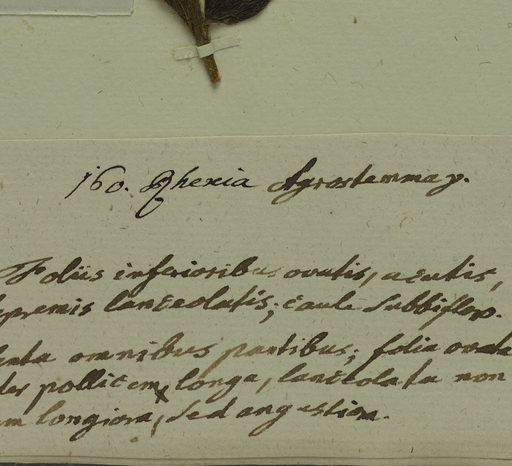 160. Rhexia Agrostemma γ.
Foliis inferioribus ovatis, acutis,
supremis lanceolatis; caule subbifloro.
omnibus partibus; folia ovata
pollicem longa, lanceolata non
longiora, sed angustiora.